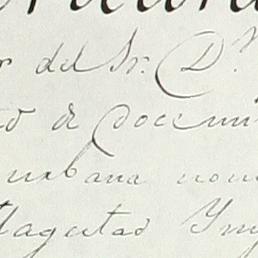 r del Sr. D.n
to de docum
urbana nom
Magestad Ym